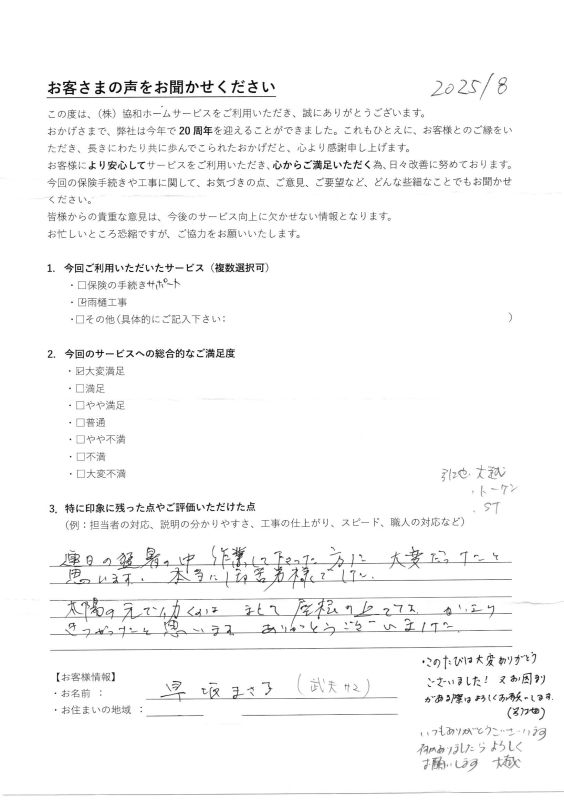 2025/8
お客さまの声をお聞かせください
この度は、（株）協和ホームサービスをご利用いただき、誠にありがとうございます。
おかげさまで、弊社は今年で 20 周年を迎えることができました。これもひとえに、お客様とのご縁をい
ただき、長きにわたり共に歩んでこられたおかげだと、心より感謝申し上げます。
お客様により安心してサービスをご利用いただき、心からご満足いただく為、日々改善に努めております。
今回の保険手続きや工事に関して、お気づきの点、ご意見、ご要望など、どんな些細なことでもお聞かせ
ください。
皆様からの貴重な意見は、今後のサービス向上に欠かせない情報となります。
お忙しいところ恐縮ですが、ご協力をお願いいたします。
1. 今回ご利用いただいたサービス（複数選択可）
・□保険の手続きサポート
・☑雨樋工事
・□その他（具体的にご記入下さい： ）
2. 今回のサービスへの総合的なご満足度
・☑大変満足
・□満足
・□やや満足
・□普通
・□やや不満
・□不満
・□大変不満
引地・大越
・トーケン
・ST
3. 特に印象に残った点やご評価いただけた点
（例：担当者の対応、説明の分かりやすさ、工事の仕上がり、スピード、職人の対応など）
連日の猛暑の中 作業して下さった方に 大変だったことと
思います. 本当にご苦労様でした.
太陽の元で働くのは まして 屋根の上では かなり
きつかったと思います ありがとうございました.
【お客様情報】
・お名前： 早坂まさる
・お住まいの地域：
・このたびは大変ありがとう
ございました! 又お困り
がある際はよろしくお願いします.
(引地)
いつもありがとうございます
何かありましたらよろしく
お願いします 大越